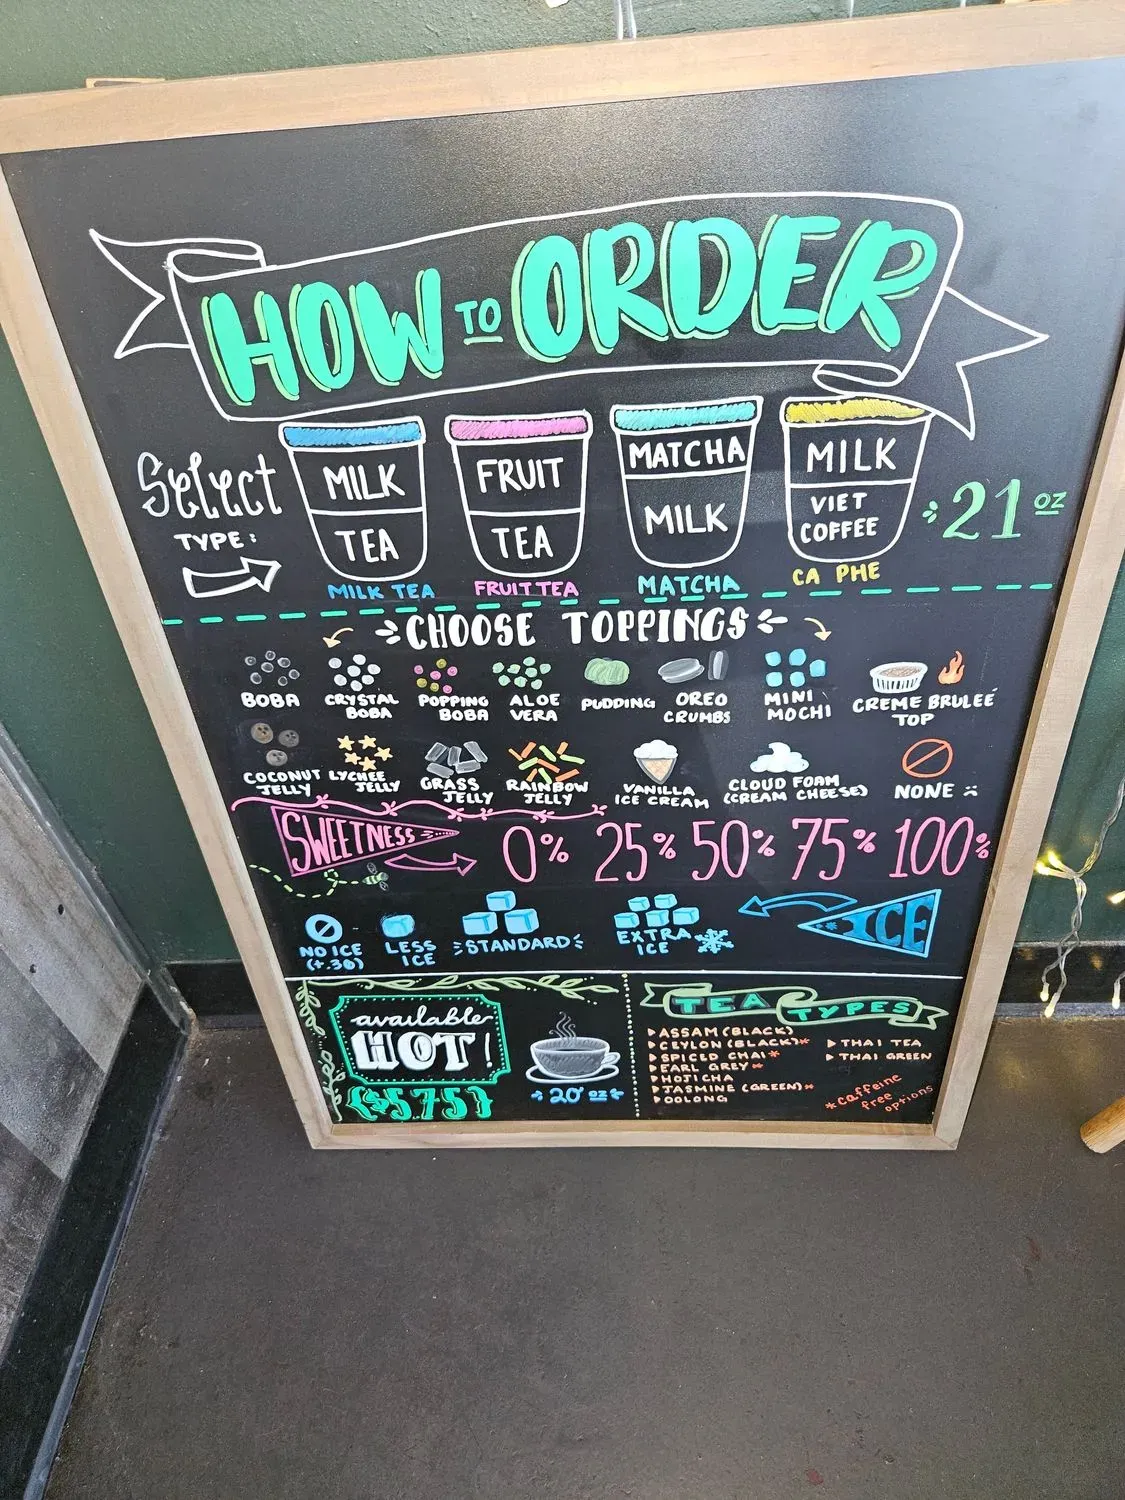 HOW TO ORDER
Select
TYPE:
MILK
TEA
MILK TEA
FRUIT
TEA
FRUIT TEA
MATCHA
MILK
MATCHA
MILK
VIET
COFFEE
CA PHE
21 oz
CHOOSE TOPPINGS
BOBA
CRYSTAL
BOBA
POPPING
BOBA
ALOE
VERA
PUDDING
OREO
CRUMBS
MINI
MOCHI
CREME BRULEÉ
TOP
COCONUT
JELLY
LYCHEE
JELLY
GRASS
JELLY
RAINBOW
JELLY
VANILLA
ICE CREAM
CLOUD FOAM
(CREAM CHEESE)
NONE :(
SWEETNESS
0% 25% 50% 75% 100%
NO ICE
(+.30)
LESS
ICE
STANDARD
EXTRA
ICE
ICE
available
HOT!
($5.75)
20 oz
TEA TYPES
ASSAM (BLACK)
CEYLON (BLACK)*
SPICED CHAI*
EARL GREY*
HOJICHA
JASMINE (GREEN)*
OOLONG
THAI TEA
THAI GREEN
*caffeine
free
options